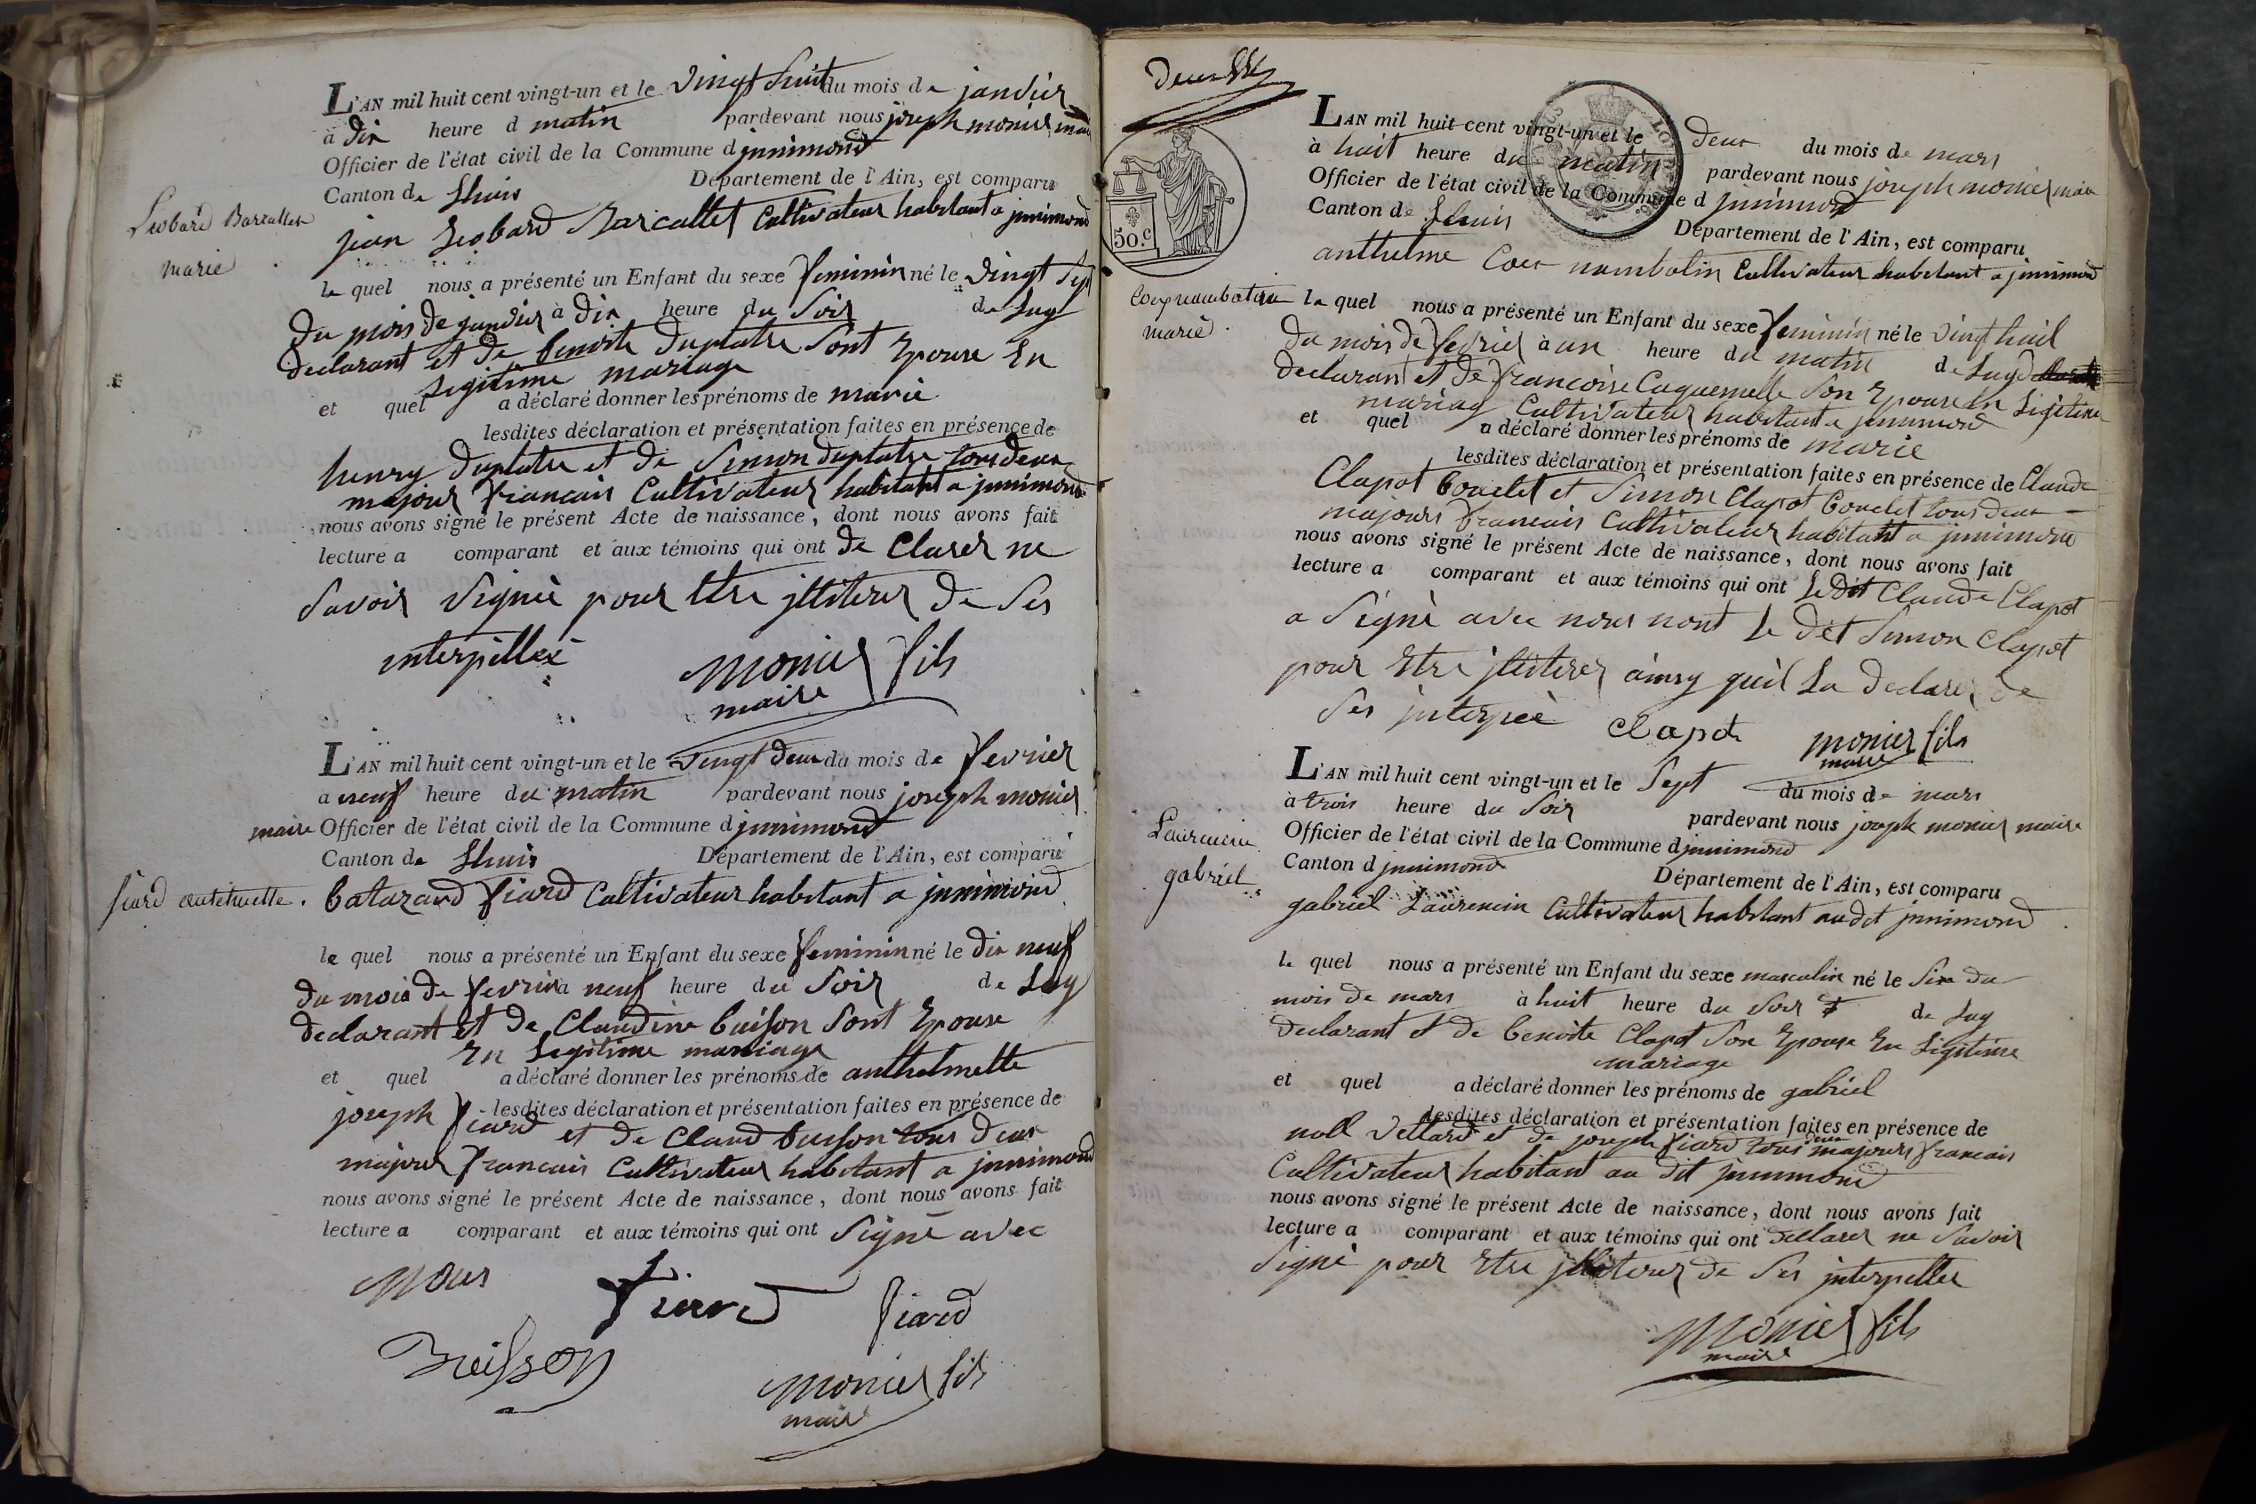 L'AN mil huit cent vingt-un et le vingt huit du mois de janvier
à dix heure d matin pardevant nous joseph monier maire
Officier de l'état civil de la Commune d jnnimond
Canton de Lhuis Département de l'Ain, est comparu
Leobard Barcallet
marie
jean Leobard Barcallet Cultivateur habitant a jnnimond
le quel nous a présenté un Enfant du sexe feminin né le vingt Sept
du mois de janvier à dix heure du Soir de Luy
declarant et de benoite duplatre Sont Epouse En
Legitime mariage
et quel a déclaré donner les prénoms de marie
lesdites déclaration et présentation faites en présence de
henry duplatre et de Simon duplatre tous deux
majour francais Cultivateur habitant a jnnimond
nous avons signé le présent Acte de naissance, dont nous avons fait
lecture a comparant et aux témoins qui ont de Clarer ne
Savoir Signié pour Etre jlliterer de Ses
interpellée
monier fils
maire
L'AN mil huit cent vingt-un et le vingt deux du mois de fevrier
a neuf heure du matin pardevant nous joseph monier
maire Officier de l'état civil de la Commune d jnnimond
Canton de Lhuis Département de l'Ain, est comparu
fiard
batazard fiard Cultivateur habitant a jnnimond
le quel nous a présenté un Enfant du sexe feminin né le dix neuf
du mois de fevrier a neuf heure du Soir de Luy
declarant et de Claudine buison Sont Epouse
En Legitime mariage
et quel a déclaré donner les prénoms de anthelmette
lesdites déclaration et présentation faites en présence de
joseph fiard et de Claud buison tous deux
majour francais Cultivateur habitant a jnnimond
nous avons signé le présent Acte de naissance, dont nous avons fait
lecture a comparant et aux témoins qui ont Signé avec
nous
fiard fiard
Buisson
monier fils
maire
50.c
L'AN mil huit cent vingt-un et le deux du mois de mars
à huit heure du matin pardevant nous joseph monier maire
Officier de l'état civil de la Commune d jnnimond
Canton de Lhuis Département de l'Ain, est comparu
anthelme Coux nambotin Cultivateur habitant a jnnimond
marie
le quel nous a présenté un Enfant du sexe feminin né le vingt huit
du mois de fevrier à un heure du matin de Luy
declarant et de francoise Caquemelle Son Epouse En Legitime
mariag Cultivateur habitant a jnnimond
et quel a déclaré donner les prénoms de marie
lesdites déclaration et présentation faites en présence de Claude
Clapot bouclet et Simon Clapot bouclet tous deux
majours francais Cultivateur habitant a jnnimond
nous avons signé le présent Acte de naissance, dont nous avons fait
lecture a comparant et aux témoins qui ont Le dit Claude Clapot
a Signé avec nous nont Le dit Simon Clapot
pour Etre jlliterer ainsy quil La declarer de
Ses interpeé
Clapot monier fils
maire
L'AN mil huit cent vingt-un et le Sept du mois de mars
à trois heure du Soir pardevant nous joseph monier maire
Officier de l'état civil de la Commune d jnnimond
Canton d jnnimond Département de l'Ain, est comparu
Laurencin
gabriel
gabriel Laurencin Cultivateur habitant audit jnnimond
le quel nous a présenté un Enfant du sexe masculin né le Six du
mois de mars à huit heure du Soir de Luy
declarant et de benoite Clapot Son Epouse En Legitime
mariage
et quel a déclaré donner les prénoms de gabriel
lesdites déclaration et présentation faites en présence de
noll Vettard et de joseph fiard tous deux majours francais
Cultivateur habitant au dit jnnimond
nous avons signé le présent Acte de naissance, dont nous avons fait
lecture a comparant et aux témoins qui ont dellarer ne Savoir
Signé pour Etre jlliterer de Ses interpeller
Monier fils
maire